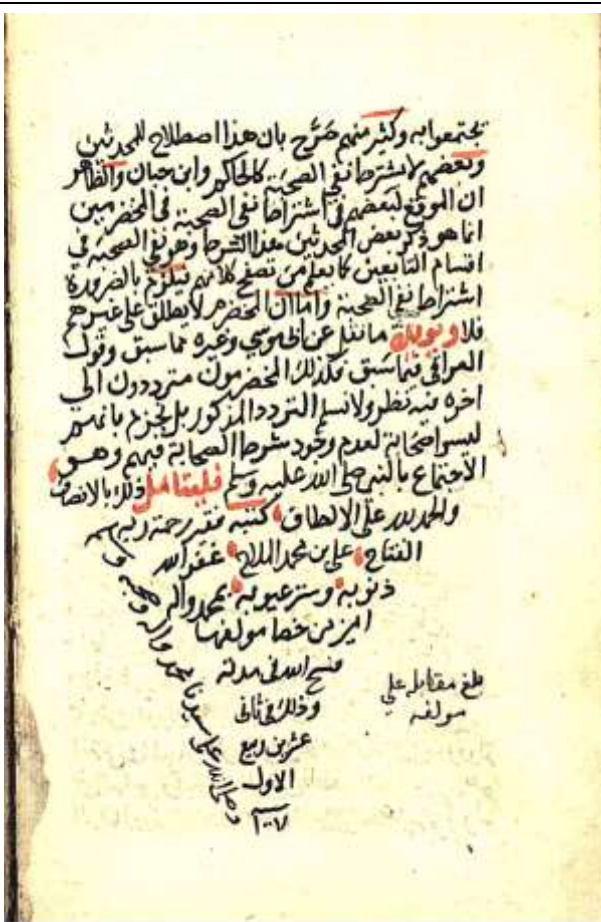 يجتمعوا به وكثير منهم صرَّح بان هذا اصطلاح للمحدثين
وبعضهم لا يشترط نفي الصحبة كالحاكم وابن حبان والظاهر
ان الموقع لبعضهم في اشتراط نفي الصحبة في المخضرمين
انما هو ذكر بعض المحدثين هذا الشرط وهو نفي الصحبة في
اقسام التابعين كما يعلم من تصفح كلامهم فيلزم بالضرورة
اشتراط نفي الصحبة واما ان المخضرم لا يطلق على غيرهم
فلا ويويده ما نقل عن وغيره مما سبق وقول
العراقي فيما سبق فكذلك المخضرمون مترددون الي
اخره فيه نظر ولا نسلم التردد المذكور بل نجزم بانهم
ليسوا صحابة لعدم وجود شرط الصحابة فيهم وهو
الاجتماع بالنبي صلى الله عليه وسلم فليتامل ذلك بالانصاف
والحمد لله على الالطاف كتبه فقير رحمة ربه
الفتاح علي بن محمد الملاح غفر الله
ذنوبه وستر عيوبه بمحمد واله
امين من خط مولفها
فسح الله في مدته
وذلك في ثاني
عشرين ربيع
الاول
١٠٠٧
وصلى الله على سيدنا محمد واله وصحبه وسلم
بلغ مقابلة علي
مولفه